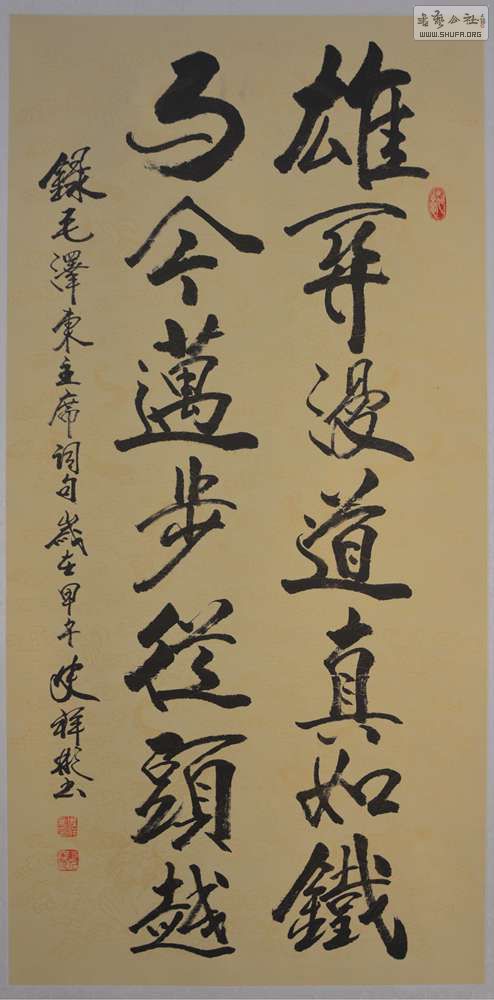 雄關漫道真如鐵
而今邁步從頭越
錄毛澤東主席詞句 歲在甲午 祥彬书
書藝公社
WWW.SHUFA.ORG